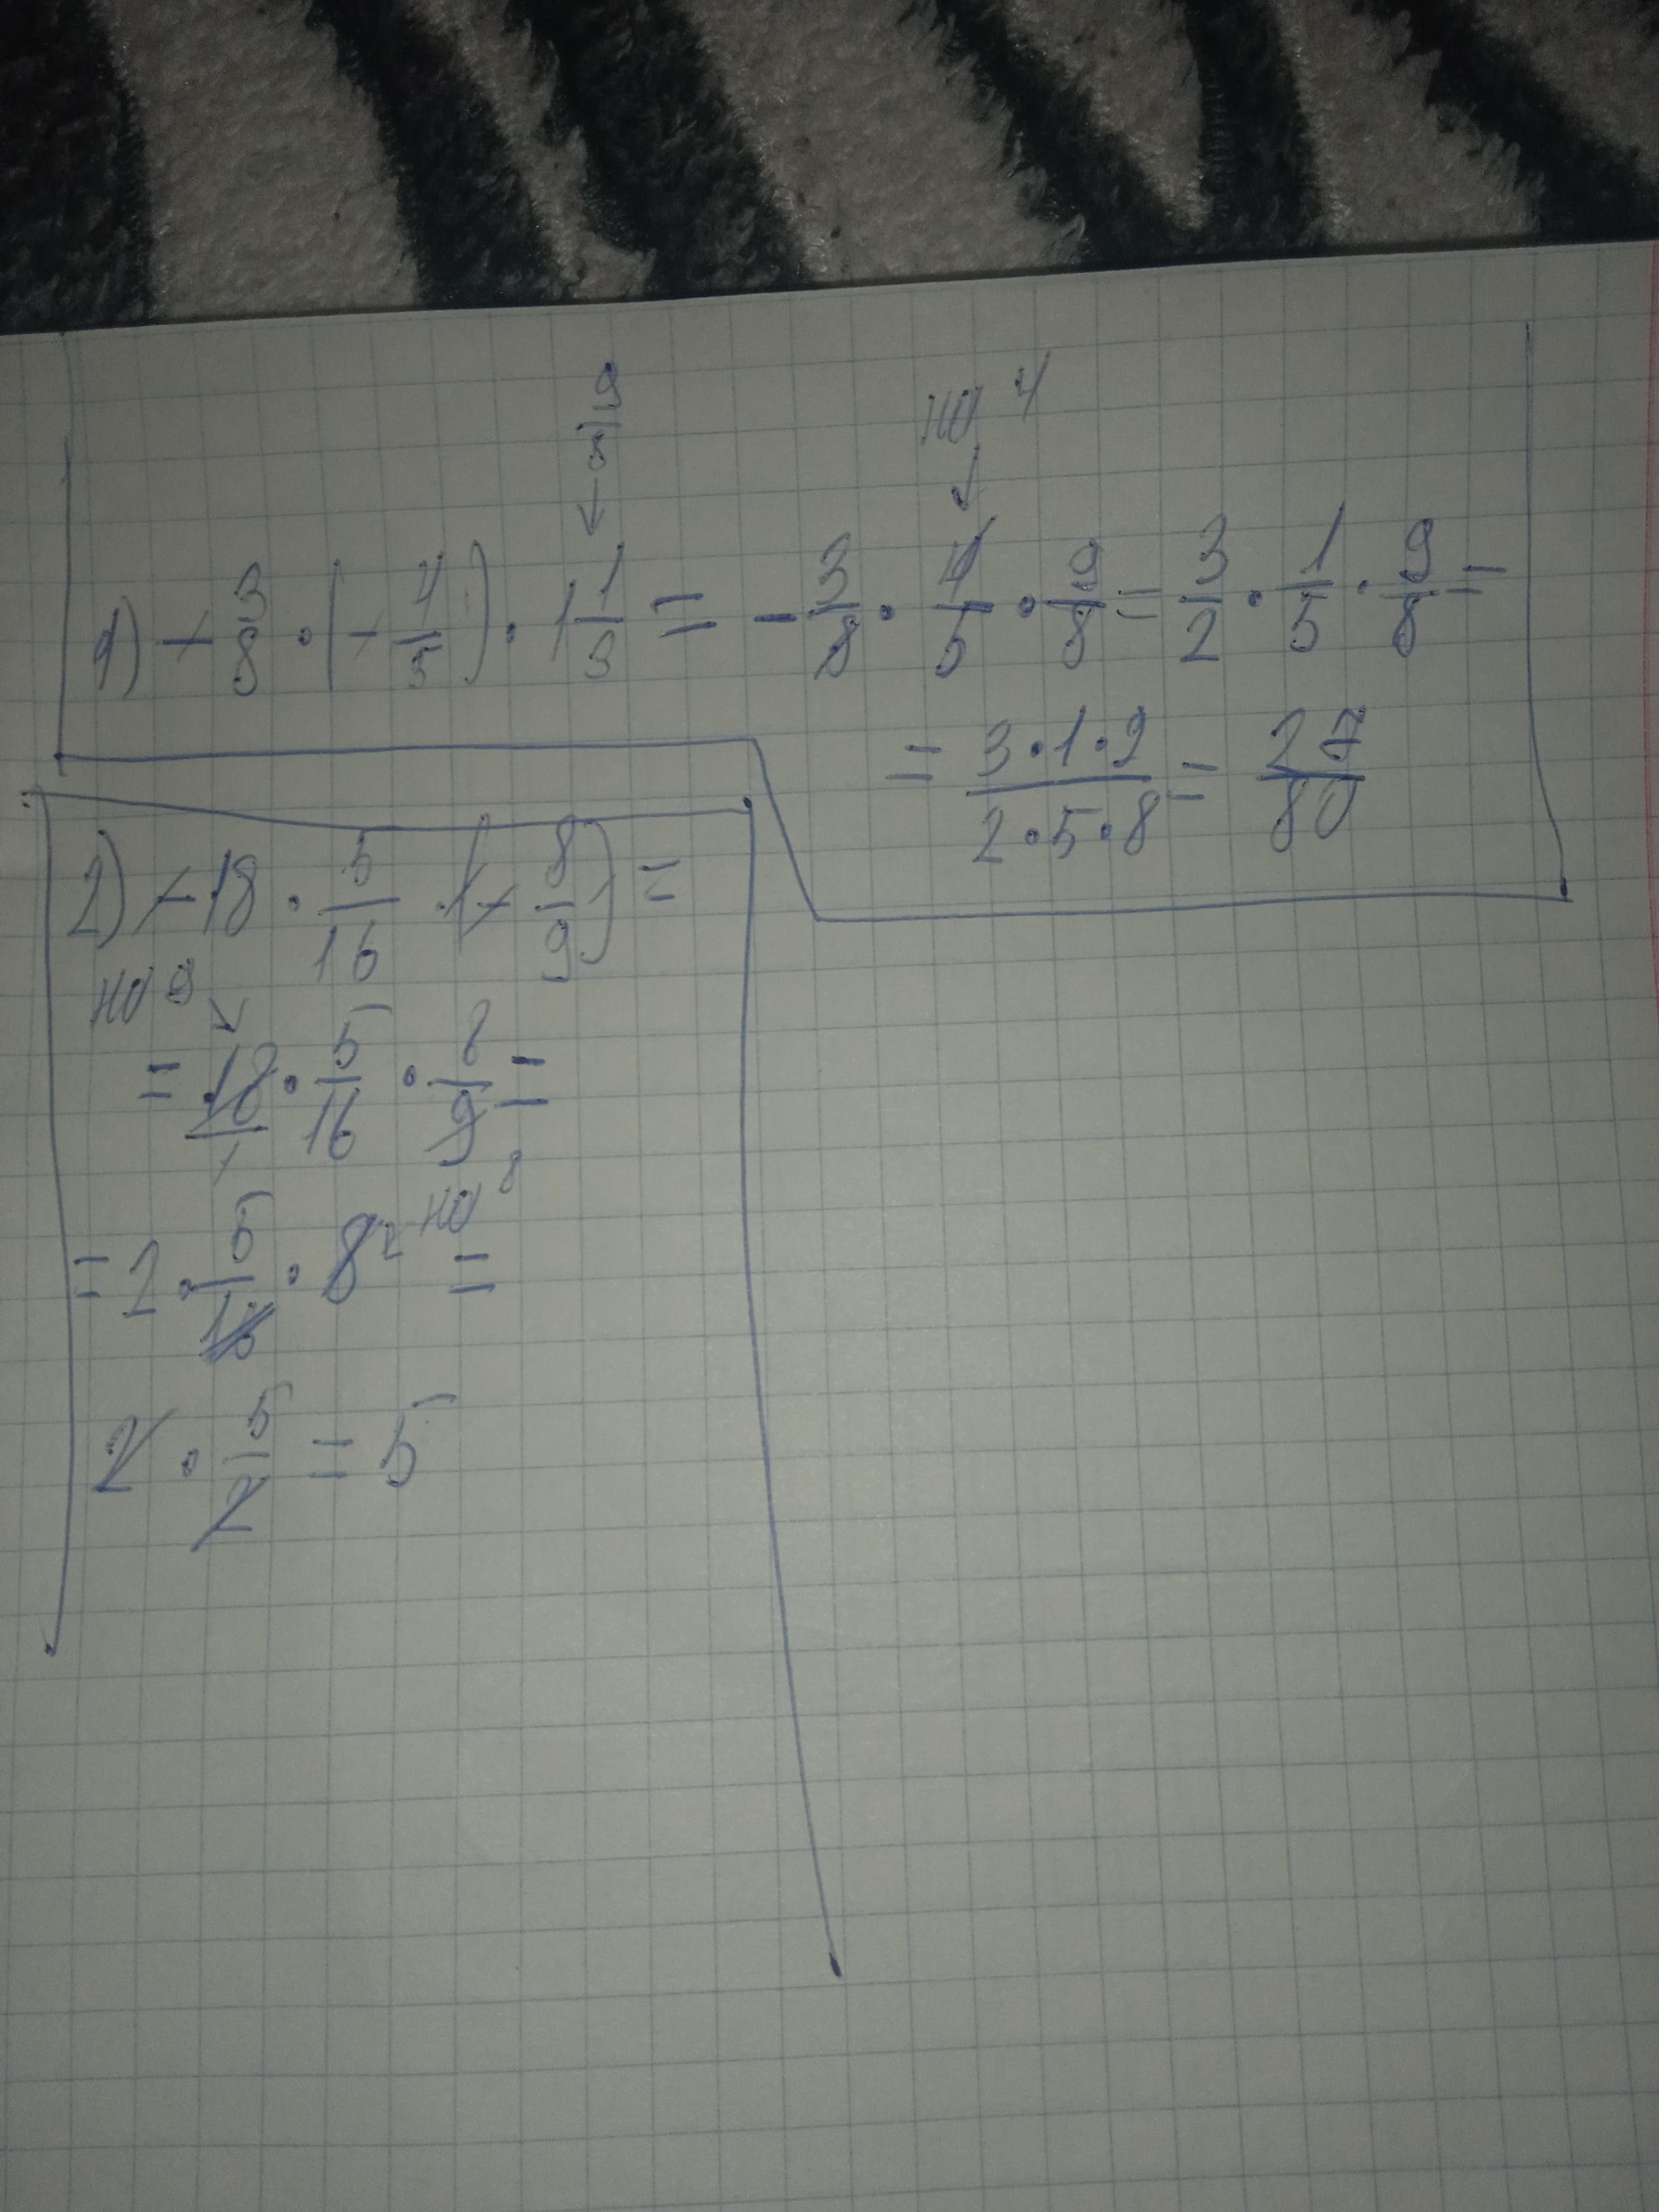 9/8
на 4
1) - 3/8 · (- 4/5) · 1 1/3 = - 3/8 · 4/5 · 9/8 = 3/2 · 1/5 · 9/8 =
= 3·1·9/2·5·8 = 27/80
2) - 18 · 5/16 · (- 8/9) =
на 9
= 18/1 · 5/16 · 8/9 =
на 8
= 2 · 5/16 · 8 =
2 · 5/2 = 5